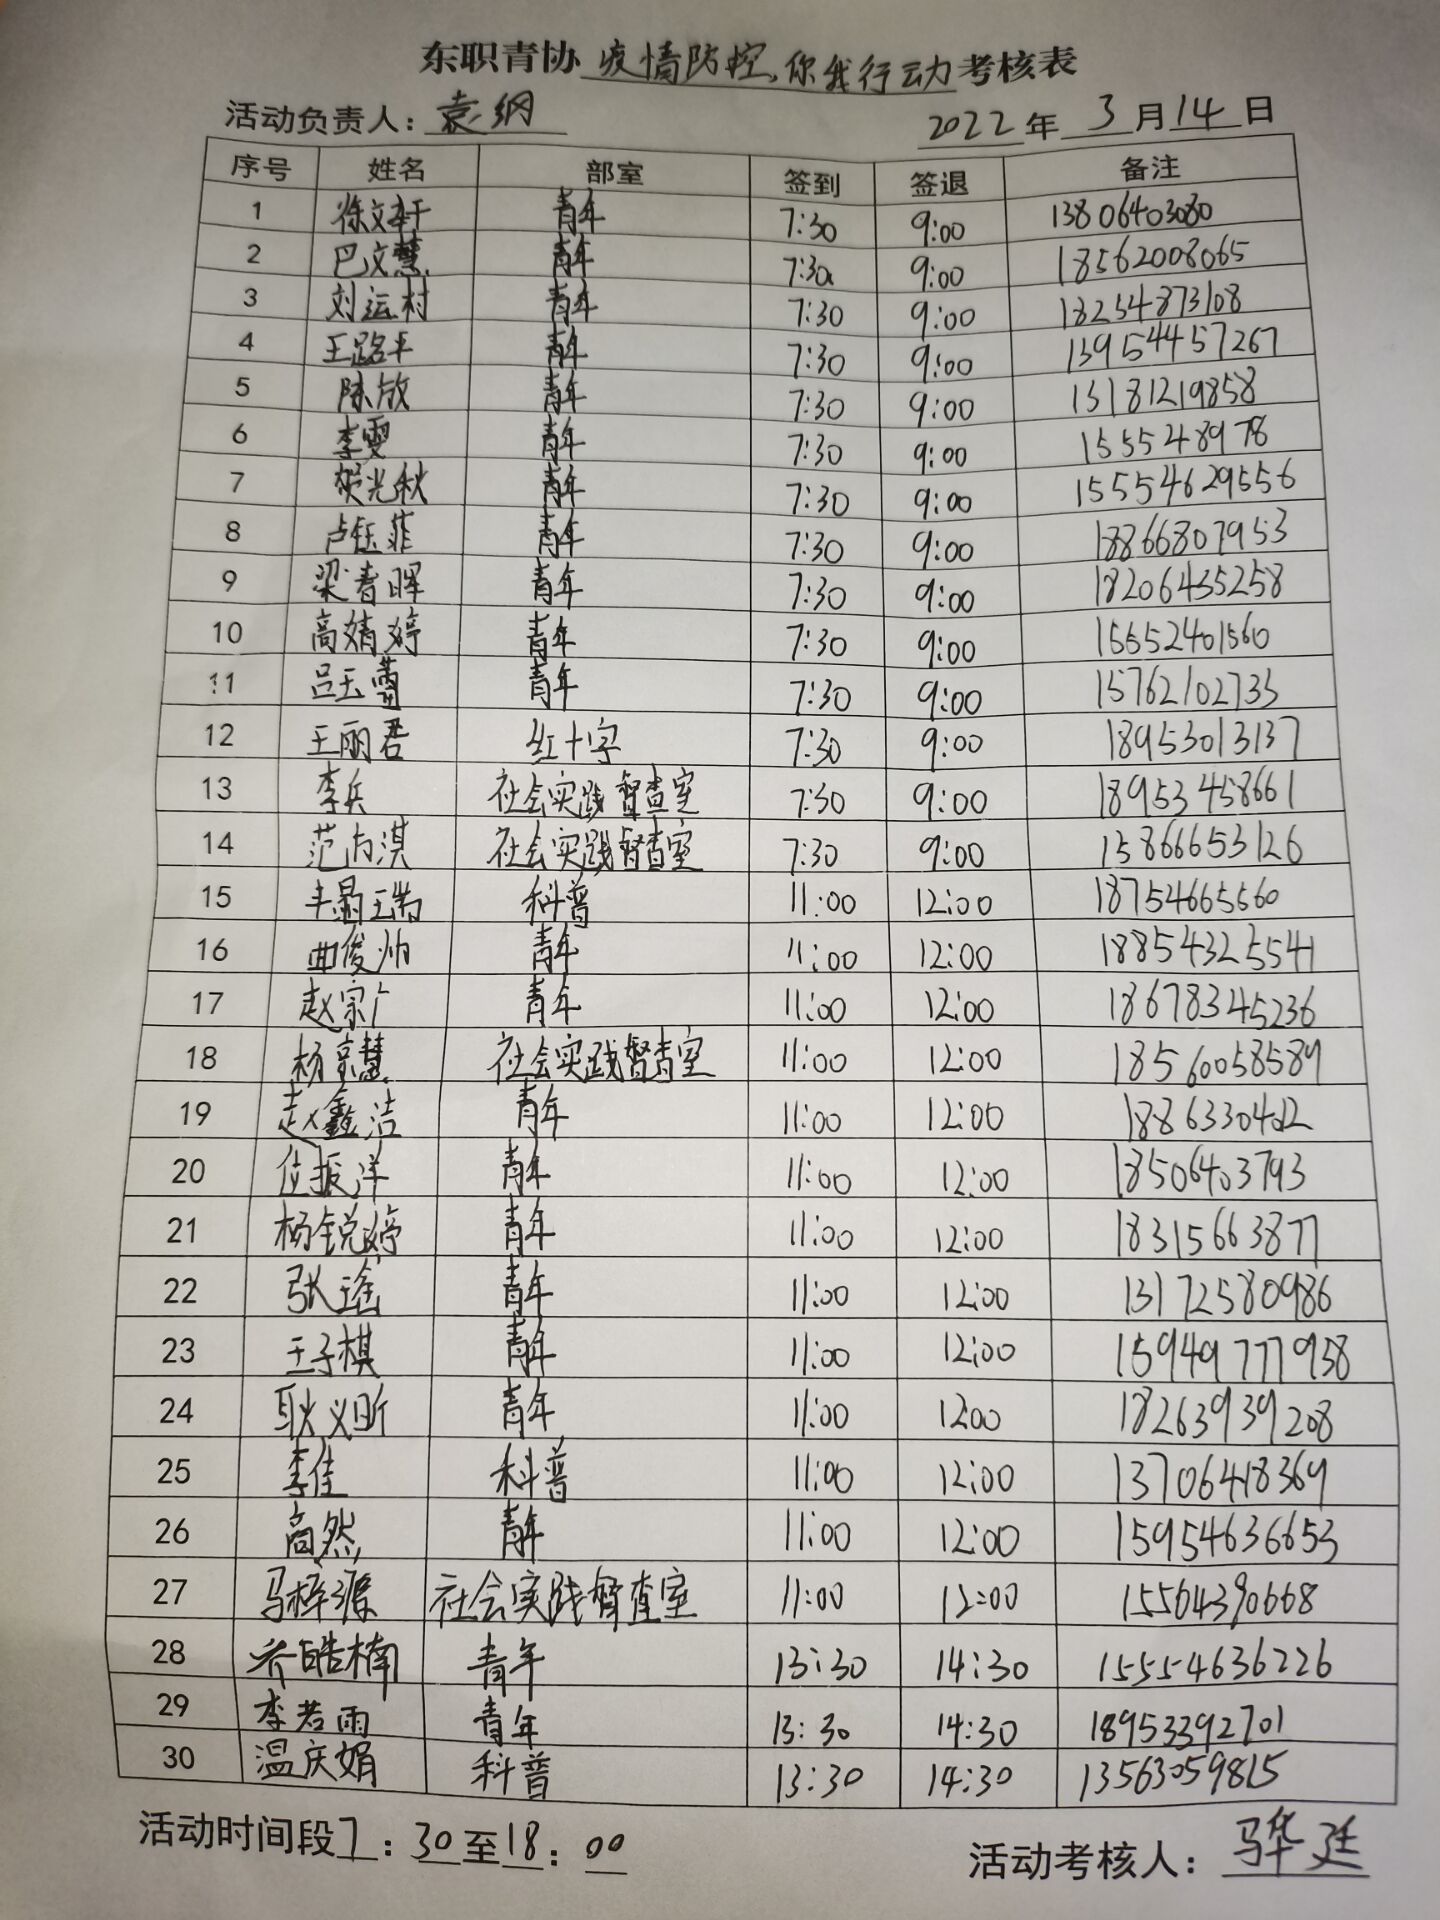 东职青协 疫情防控,你我行动 考核表
活动负责人: 袁纲 2022年 3月14日
序号 姓名 部室 签到 签退 备注
1 徐文轩 青年 7:30 9:00 13806403080
2 巴文慧 青年 7:30 9:00 18562008065
3 刘运村 青年 7:30 9:00 18254873108
4 王路平 青年 7:30 9:00 13954457267
5 陈放 青年 7:30 9:00 13181219858
6 李雯 青年 7:30 9:00 1555248978
7 樊光秋 青年 7:30 9:00 15554629556
8 卢钰菲 青年 7:30 9:00 18866807953
9 梁春晖 青年 7:30 9:00 18206435258
10 高婧婷 青年 7:30 9:00 15552401560
11 吕玉 青年 7:30 9:00 15762102733
12 王丽君 红十字 7:30 9:00 18953013137
13 李兵 社会实践督查室 7:30 9:00 18953458661
14 范淇 社会实践督查室 7:30 9:00 15866653126
15 科普 11:00 12:00 18754665660
16 曲俊帅 青年 11:00 12:00 18854325541
17 赵宗广 青年 11:00 12:00 18678345236
18 杨京慧 社会实践督查室 11:00 12:00 18560058589
19 赵鑫洁 青年 11:00 12:00 1886330402
20 位振洋 青年 11:00 12:00 18506403793
21 杨锐婷 青年 11:00 12:00 18315663877
22 张瑶 青年 11:00 12:00 13172580986
23 王子棋 青年 11:00 12:00 15949777958
24 耿义昕 青年 11:00 12:00 18263939208
25 李佳 科普 11:00 12:00 13706418369
26 高然 青年 11:00 12:00 15954636653
27 马梓源 社会实践督查室 11:00 12:00 15564390668
28 乔皓楠 青年 13:30 14:30 15554636226
29 李若雨 青年 13:30 14:30 18953392701
30 温庆娟 科普 13:30 14:30 13563059815
活动时间段7:30至18:00
活动考核人: 马华廷